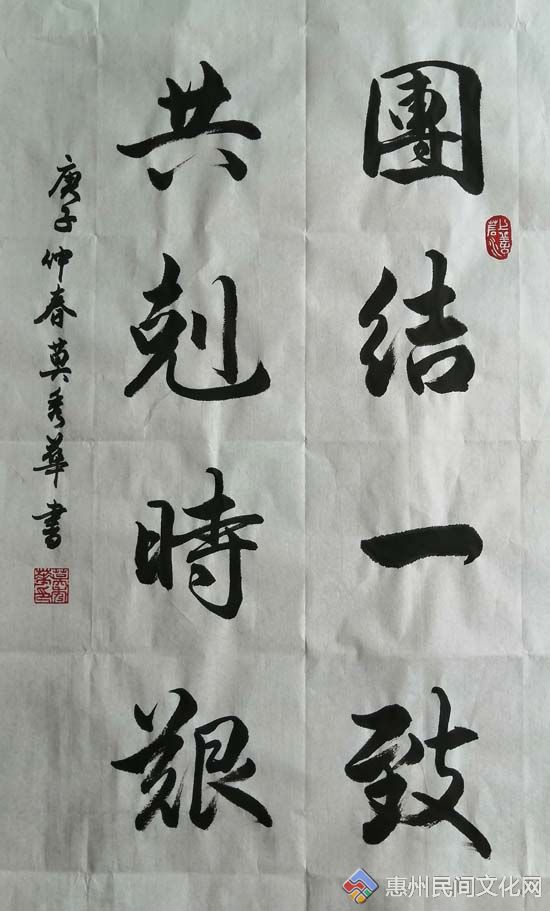 團結一致
共剋時艱
庚子仲春莫秀華書
惠州民间文化网